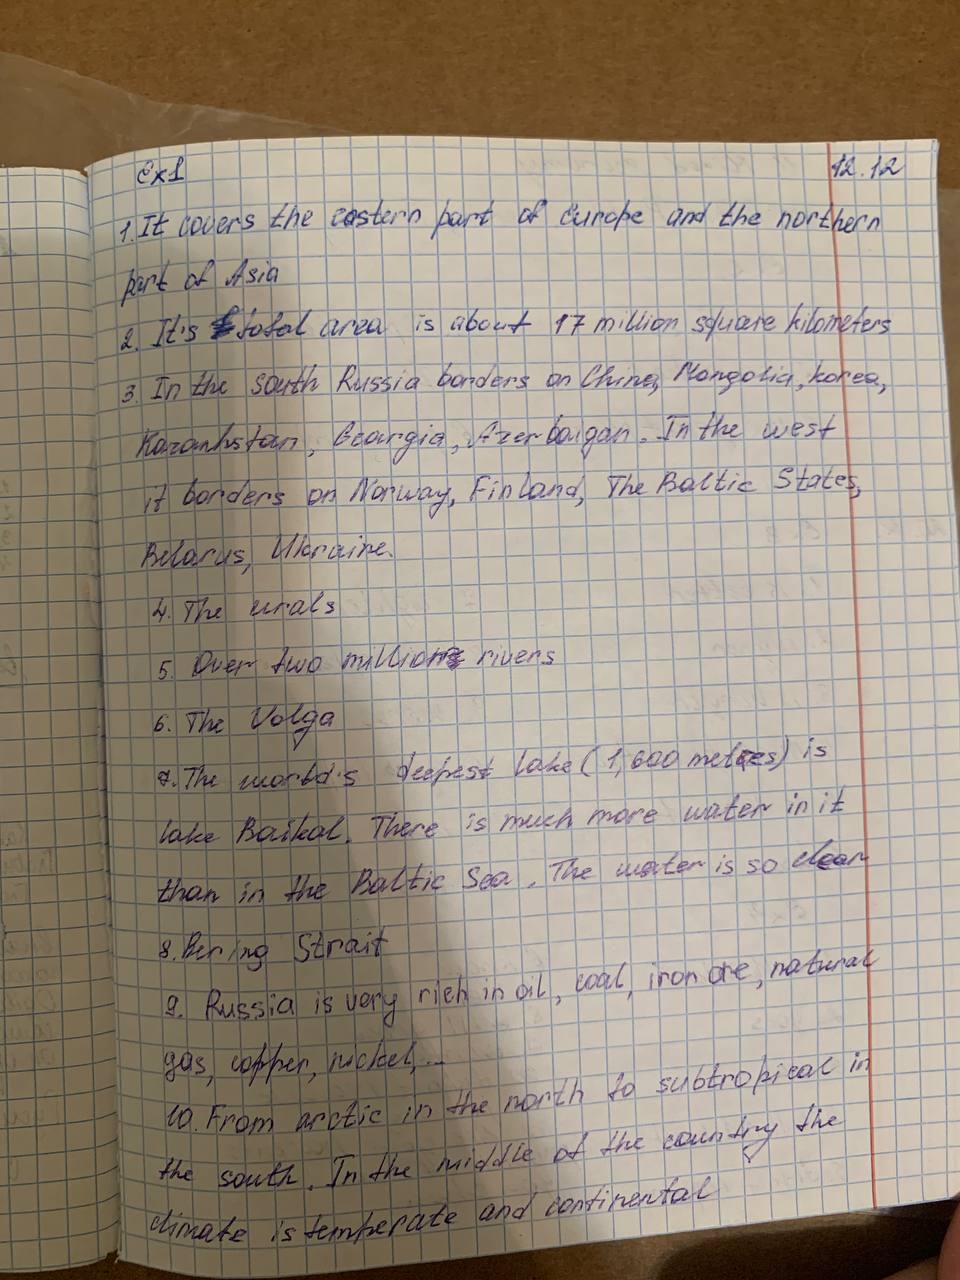 Ex1
12.12
1. It covers the eastern part of Europe and the northern
part of Asia
2. It's total area is about 17 million square kilometers
3. In the south Russia borders on China, Mongolia, Korea,
Kazanhstan, Georgia, Azerbaigan. In the west
it borders on Norway, Finland, The Baltic States,
Belarus, Ukraine.
4. The urals
5. Over two million rivers
6. The Volga
7. The world's deepest lake (1,600 metres) is
lake Baikal. There is much more water in it
than in the Baltic Sea. The water is so clear
8. Bering Strait
9. Russia is very rich in oil, coal, iron ore, natural
gas, copper, nickel, ...
10. From arctic in the north to subtropical in
the south. In the middle of the country the
climate is temperate and continental